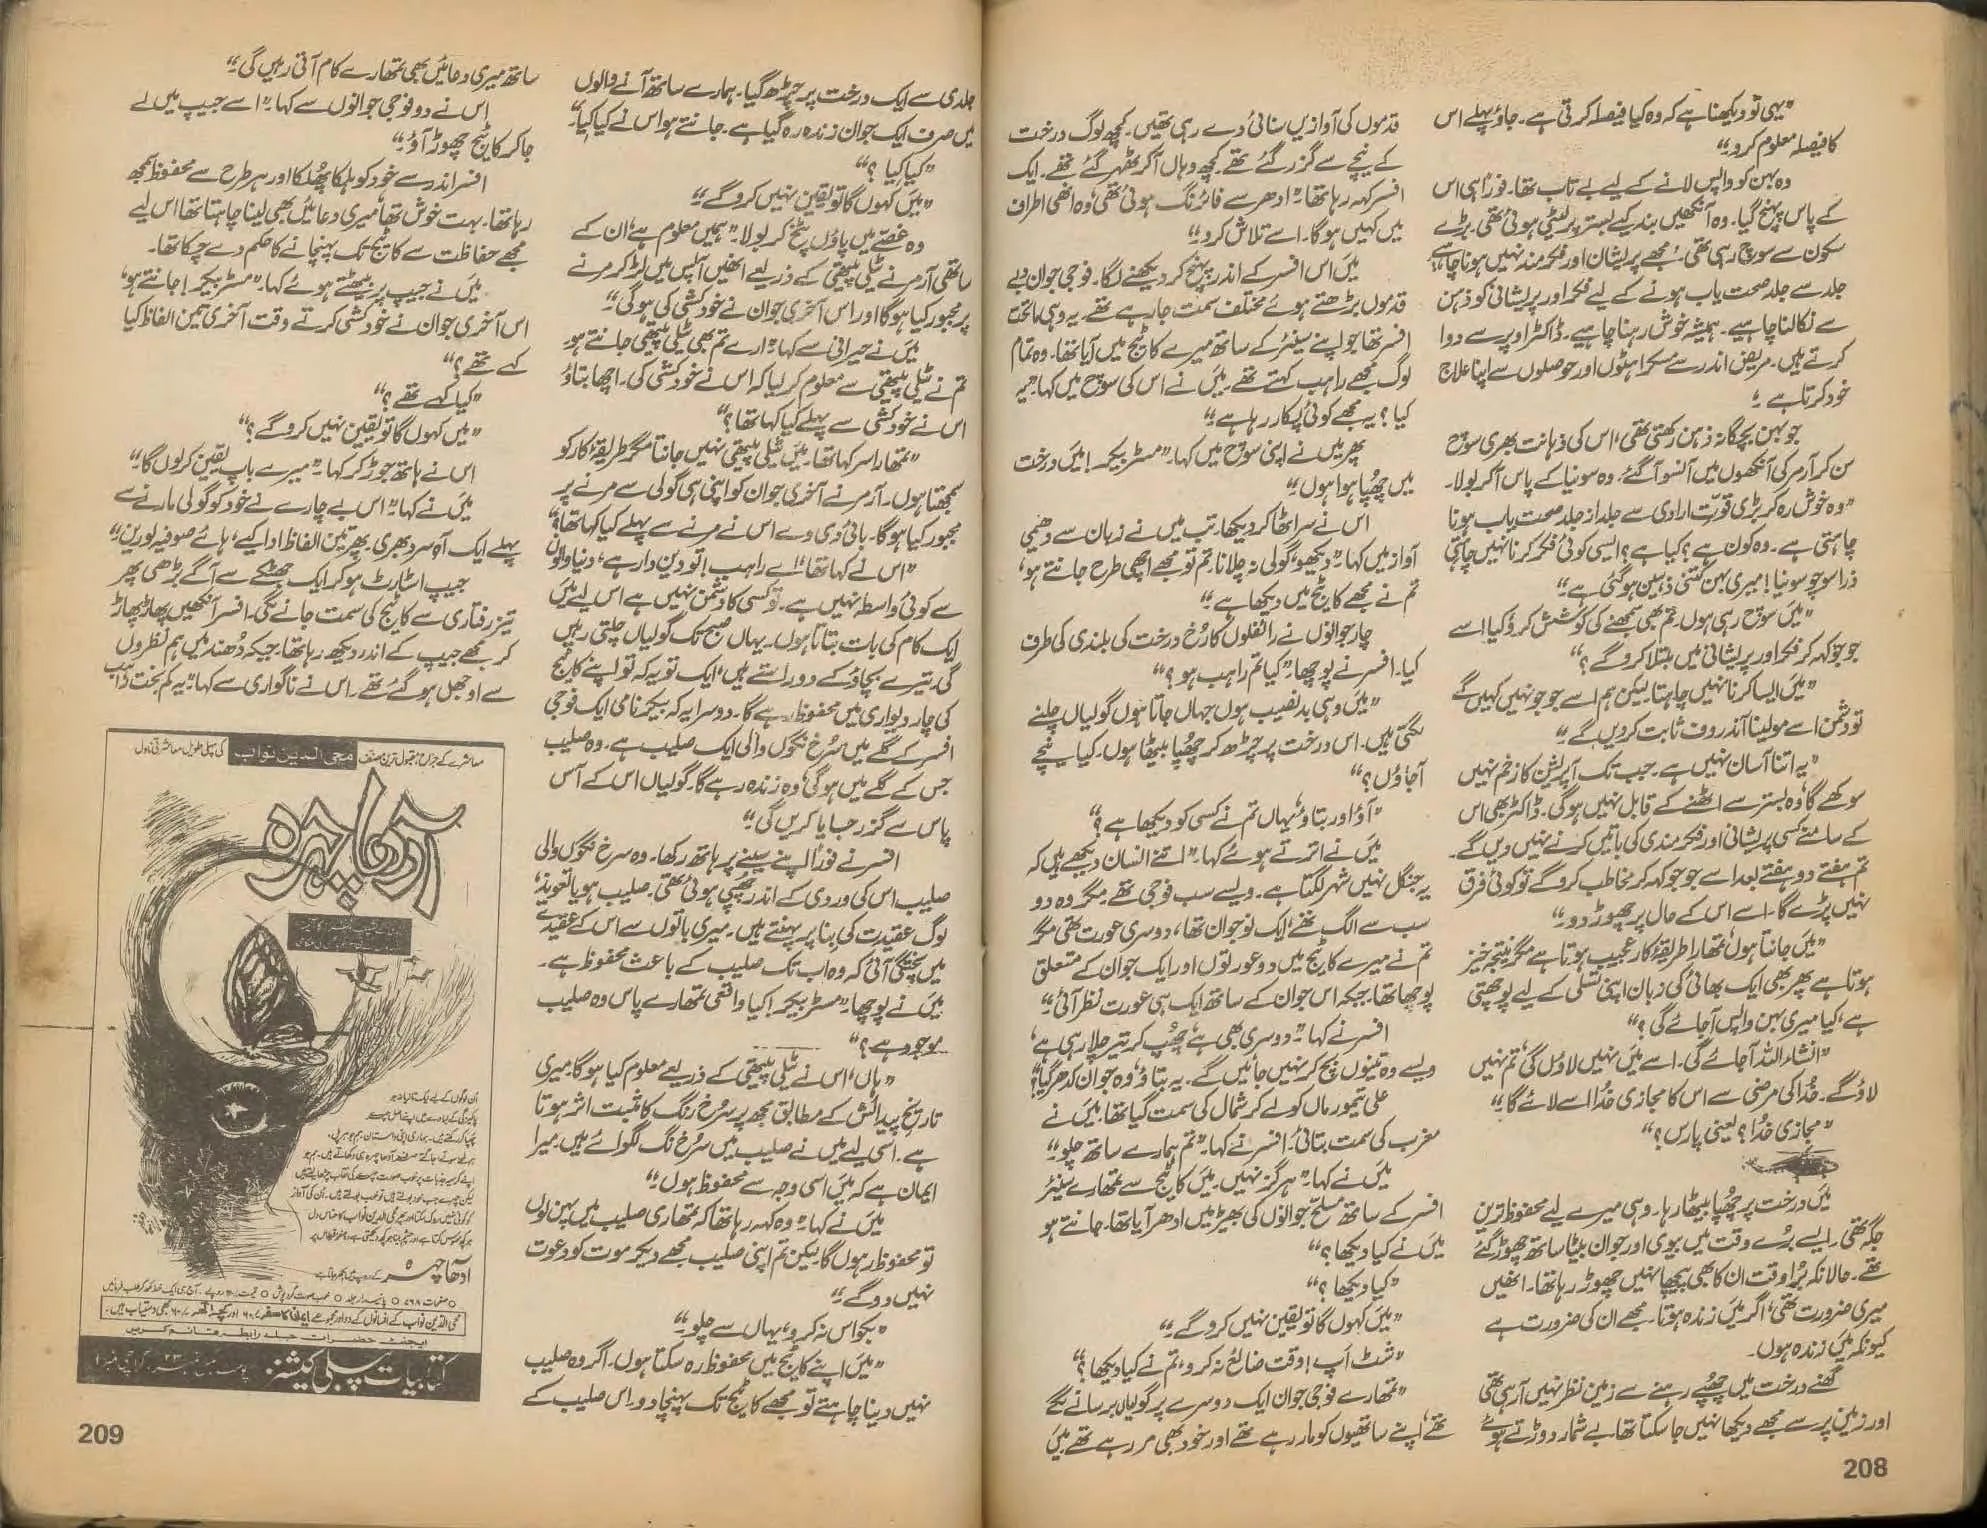 ”یہی تو دیکھنا ہے کہ وہ کیا فیصلہ کرتی ہے۔ جاؤ پہلے اس
کا فیصلہ معلوم کرو۔“
وہ بہن کو واپس لانے کے لیے بے تاب تھا۔ فوراً ہی اس
کے پاس پہنچ گیا۔ وہ آنکھیں بند کیے بستر پر لیٹی ہوئی تھی۔ بڑے
سکون سے سوچ رہی تھی۔ مجھے پریشان اور فکر مند نہیں ہونا چاہیے،
جلد سے جلد صحت یاب ہونے کے لیے فکر اور پریشانی کو ذہن
سے نکالنا چاہیے۔ ہمیشہ خوش رہنا چاہیے۔ ڈاکٹر اوپر سے دوا
کرتے ہیں۔ مریض اندر سے مسکراہٹوں اور حوصلوں سے اپنا علاج
خود کرتا ہے۔
جو بہن بچگانہ ذہن رکھتی تھی، اس کی ذہانت بھری سوچ
سن کر آرمر کی آنکھوں میں آنسو آگئے۔ وہ سونیا کے پاس آکر بولا۔
”وہ خوش رہ کر بڑی قوتِ ارادی سے جلد از جلد صحت یاب ہونا
چاہتی ہے۔ وہ کون ہے؟ کیا ہے؟ ایسی کوئی فکر کرنا نہیں چاہتی
ذرا سوچو سونیا! میری بہن کتنی ذہین ہوگئی ہے۔“
”میں سوچ رہی ہوں۔ تم بھی سمجھنے کی کوشش کرو، کیا اسے
جوجو کہہ کر فکر اور پریشانی میں مبتلا کرو گے؟“
”میں ایسا کرنا نہیں چاہتا لیکن ہم اسے جوجو نہیں کہیں گے
تو دشمن اسے مولینا آندروف ثابت کردیں گے۔“
”یہ اتنا آسان نہیں ہے۔ جب تک آپریشن کا زخم نہیں
سوکھے گا، وہ بستر سے اٹھنے کے قابل نہیں ہوگی۔ ڈاکٹر بھی اس
کے سامنے کسی پریشانی اور فکر مندی کی باتیں کرنے نہیں دیں گے۔
تم ہفتے دو ہفتے بعد اسے جوجو کہہ کر مخاطب کرو گے تو کوئی فرق
نہیں پڑے گا۔ اسے اس کے حال پر چھوڑ دو۔“
”میں جانتا ہوں، تمھارا طریقۂ کار عجیب ہوتا ہے مگر نتیجہ خیز
ہوتا ہے پھر بھی ایک بھائی کی زبان اپنی تسلی کے لیے پوچھتی
ہے، کیا میری بہن واپس آجائے گی؟“
”انشاء اللہ آجائے گی۔ اسے میں نہیں لاؤں گی، تم نہیں
لاؤ گے۔ خدا کی مرضی سے اس کا مجازی خدا اسے لائے گا۔“
”مجازی خدا؟ یعنی پارس؟“
میں درخت پر چھپا بیٹھا رہا۔ وہی میرے لیے محفوظ ترین
جگہ تھی۔ ایسے بُرے وقت میں بیوی اور جوان بیٹا ساتھ چھوڑ گئے
تھے۔ حالانکہ بُرا وقت ان کا بھی پیچھا نہیں چھوڑ رہا تھا۔ انھیں
میری ضرورت تھی، اگر میں زندہ ہوتا۔ مجھے ان کی ضرورت ہے
کیونکہ میں زندہ ہوں۔
گھنے درخت میں چھپے رہنے سے زمین نظر نہیں آرہی تھی
اور زمین پر سے مجھے دیکھا نہیں جاسکتا تھا۔ بے شمار دوڑتے ہوئے
قدموں کی آوازیں سنائی دے رہی تھیں۔ کچھ لوگ درخت
کے نیچے سے گزر گئے تھے۔ کچھ وہاں آکر ٹھہر گئے تھے۔ ایک
افسر کہہ رہا تھا۔ ”ادھر سے فائرنگ ہوئی تھی، وہ انھی اطراف
میں کہیں ہوگا۔ اسے تلاش کرو۔“
میں اس افسر کے اندر پہنچ کر دیکھنے لگا۔ فوجی جوان دبے
قدموں بڑھتے ہوئے مختلف سمت جارہے تھے۔ یہ وہی ماتحت
افسر تھا جو اپنے سینئر کے ساتھ میرے کاٹیج میں آیا تھا۔ وہ تمام
لوگ مجھے راہب کہتے تھے۔ میں نے اس کی سوچ میں کہا۔ ”یہ
کیا؟ یہ مجھے کوئی پکار رہا ہے۔“
پھر میں نے اپنی سوچ میں کہا۔ ”مسٹر بیکر! میں درخت
میں چھپا ہوا ہوں۔“
اس نے سر اٹھا کر دیکھا، تب میں نے زبان سے دھیمی
آواز میں کہا۔ ”دیکھو، گولی نہ چلانا۔ تم تو مجھے اچھی طرح جانتے ہو،
تم نے مجھے کاٹیج میں دیکھا ہے۔“
چار جوانوں نے رائفلوں کا رُخ درخت کی بلندی کی طرف
کیا۔ افسر نے پوچھا۔ ”کیا تم راہب ہو؟“
”میں وہی بدنصیب ہوں جہاں جاتا ہوں گولیاں چلنے
لگتی ہیں۔ اس درخت پر چڑھ کر چھپا بیٹھا ہوں۔ کیا نیچے
آجاؤں؟“
”آؤ اور بتاؤ، یہاں تم نے کسی کو دیکھا ہے؟“
میں نے اترتے ہوئے کہا۔ ”اتنے انسان دیکھے ہیں کہ
یہ جنگل نہیں شہر لگتا ہے۔ ویسے سب فوجی تھے مگر وہ دو
سب سے الگ تھے، ایک نوجوان تھا، دوسری عورت تھی مگر
تم نے میرے کاٹیج میں دو عورتوں اور ایک جوان کے متعلق
پوچھا تھا۔ جبکہ اس جوان کے ساتھ ایک ہی عورت نظر آئی۔“
افسر نے کہا۔ ”دوسری بھی ہے، چھپ کر تیر چلا رہی ہے،
ویسے وہ تینوں بچ کر نہیں جائیں گے۔ یہ بتاؤ، وہ جوان کدھر گیا؟“
علی تیمور ماں کو لے کر شمال کی سمت گیا تھا، میں نے
مغرب کی سمت بتائی۔ افسر نے کہا۔ ”تم ہمارے ساتھ چلو۔“
میں نے کہا۔ ”ہرگز نہیں۔ میں کاٹیج سے تمھارے سینئر
افسر کے ساتھ مسلح جوانوں کی بھیڑ میں ادھر آیا تھا۔ جانتے ہو
میں نے کیا دیکھا؟“
”کیا دیکھا؟“
”میں کہوں گا تو یقین نہیں کرو گے۔“
”شٹ اَپ! وقت ضائع نہ کرو، تم نے کیا دیکھا؟“
”تمھارے فوجی جوان ایک دوسرے پر گولیاں برسانے لگے
تھے، اپنے ساتھیوں کو مار رہے تھے اور خود بھی مر رہے تھے میں
208
جلدی سے ایک درخت پر چڑھ گیا۔ ہمارے ساتھ آنے والوں
میں صرف ایک جوان زندہ رہ گیا ہے۔ جانتے ہو اس نے کیا کیا؟“
”کیا کیا؟“
”میں کہوں گا تو یقین نہیں کرو گے۔“
وہ غصے میں پاؤں پٹخ کر بولا۔ ”ہمیں معلوم ہے، ان کے
ساتھی آرمر نے ٹیلی پیتھی کے ذریعے انھیں آپس میں لڑ کر مرنے
پر مجبور کیا ہوگا اور اس آخری جوان نے خودکشی کی ہوگی۔“
میں نے حیرانی سے کہا۔ ”ارے تم بھی ٹیلی پیتھی جانتے ہو،
تم نے ٹیلی پیتھی سے معلوم کرلیا کہ اس نے خودکشی کی۔ اچھا بتاؤ
اس نے خودکشی سے پہلے کیا کہا تھا؟“
”تمھارا سر کہا تھا۔ میں ٹیلی پیتھی نہیں جانتا مگر طریقۂ کار کو
سمجھتا ہوں۔ آرمر نے آخری جوان کو اپنی ہی گولی سے مرنے پر
مجبور کیا ہوگا۔ بائی دی وے اس نے مرنے سے پہلے کیا کہا تھا؟“
”اس نے کہا تھا، اے راہب! تو دین دار ہے، دنیا والوں
سے کوئی واسطہ نہیں ہے۔ تو کسی کا دشمن نہیں ہے اس لیے میں
ایک کام کی بات بتاتا ہوں۔ یہاں صبح تک گولیاں چلتی رہیں
گی۔ تیرے بچاؤ کے دو راستے ہیں، ایک تو یہ کہ تو اپنے کاٹیج
کی چار دیواری میں محفوظ رہے گا۔ دوسرا یہ کہ بیکر نامی ایک فوجی
افسر کے گلے میں سُرخ نگوں والی ایک صلیب ہے۔ وہ صلیب
جس کے گلے میں ہوگی وہ زندہ رہے گا۔ گولیاں اس کے آس
پاس سے گزر جایا کریں گی۔“
افسر نے فوراً اپنے سینے پر ہاتھ رکھا۔ وہ سرخ نگوں والی
صلیب اس کی وردی کے اندر چھپی ہوئی تھی۔ صلیب ہو یا تعویذ،
لوگ عقیدت کی بنا پر پہنتے ہیں۔ میری باتوں سے اس کے عقیدے
میں پختگی آئی کہ وہ اب تک صلیب کے باعث محفوظ ہے۔
میں نے پوچھا۔ ”مسٹر بیکر! کیا واقعی تمھارے پاس وہ صلیب
موجود ہے؟“
”ہاں، اس نے ٹیلی پیتھی کے ذریعے معلوم کیا ہوگا۔ میری
تاریخ پیدائش کے مطابق مجھ پر سرخ رنگ کا مثبت اثر ہوتا
ہے۔ اسی لیے میں نے صلیب میں سُرخ نگ لگوائے ہیں۔ میرا
ایمان ہے کہ میں اسی وجہ سے محفوظ ہوں۔“
میں نے کہا۔ ”وہ کہہ رہا تھا کہ تمھاری صلیب میں پہن لوں
تو محفوظ رہوں گا۔ لیکن تم اپنی صلیب مجھے دیکر موت کو دعوت
نہیں دو گے۔“
”بکواس نہ کرو، یہاں سے چلو۔“
”میں اپنے کاٹیج میں محفوظ رہ سکتا ہوں۔ اگر وہ صلیب
نہیں دینا چاہتے تو مجھے کاٹیج تک پہنچا دو۔ اس صلیب کے
ساتھ میری دعائیں بھی تمھارے کام آتی رہیں گی۔“
اس نے دو فوجی جوانوں سے کہا۔ ”اسے جیپ میں لے
جاکر کاٹیج چھوڑ آؤ۔“
افسر اندر سے خود کو ہلکا پھلکا اور ہر طرح سے محفوظ سمجھ
رہا تھا۔ بہت خوش تھا، میری دعائیں بھی لینا چاہتا تھا اس لیے
مجھے حفاظت سے کاٹیج تک پہنچانے کا حکم دے چکا تھا۔
میں نے جیپ پر بیٹھتے ہوئے کہا۔ ”مسٹر بیکر! جانتے ہو،
اس آخری جوان نے خودکشی کرتے وقت آخری تین الفاظ کیا
کہے تھے؟“
”کیا کہے تھے؟“
”میں کہوں گا تو یقین نہیں کرو گے؟“
اس نے ہاتھ جوڑ کر کہا۔ ”میرے باپ یقین کرلوں گا۔“
میں نے کہا۔ ”اس بے چارے نے خود کو گولی مارنے سے
پہلے ایک آہِ سرد بھری۔ پھر تین الفاظ ادا کیے، ہائے صوفیہ لورین۔“
جیپ اسٹارٹ ہوکر ایک جھٹکے سے آگے بڑھی پھر
تیز رفتاری سے کاٹیج کی سمت جانے لگی۔ افسر آنکھیں پھاڑ پھاڑ
کر مجھے جیپ کے اندر دیکھ رہا تھا، جبکہ دُھند میں ہم نظروں
سے اوجھل ہوگئے تھے۔ اس نے ناگواری سے کہا۔ ”یہ کم بخت
معاشرے کے جراح، مقبول ترین مصنف محی الدین نواب کی پہلی طویل معاشرتی ناول
آدھا چہرہ
آدھا چہرہ
محی الدین نواب کے افسانوں کے دو اور مجموعے ایمان کا سفر ۶۰/ اور کچرا گھر ۶۰/ بھی دستیاب ہیں۔
ایجنٹ حضرات جلد رابطہ قائم کریں
کتابیات پبلی کیشنز پوسٹ بکس نمبر ۲۳ کراچی نمبر ۱
209